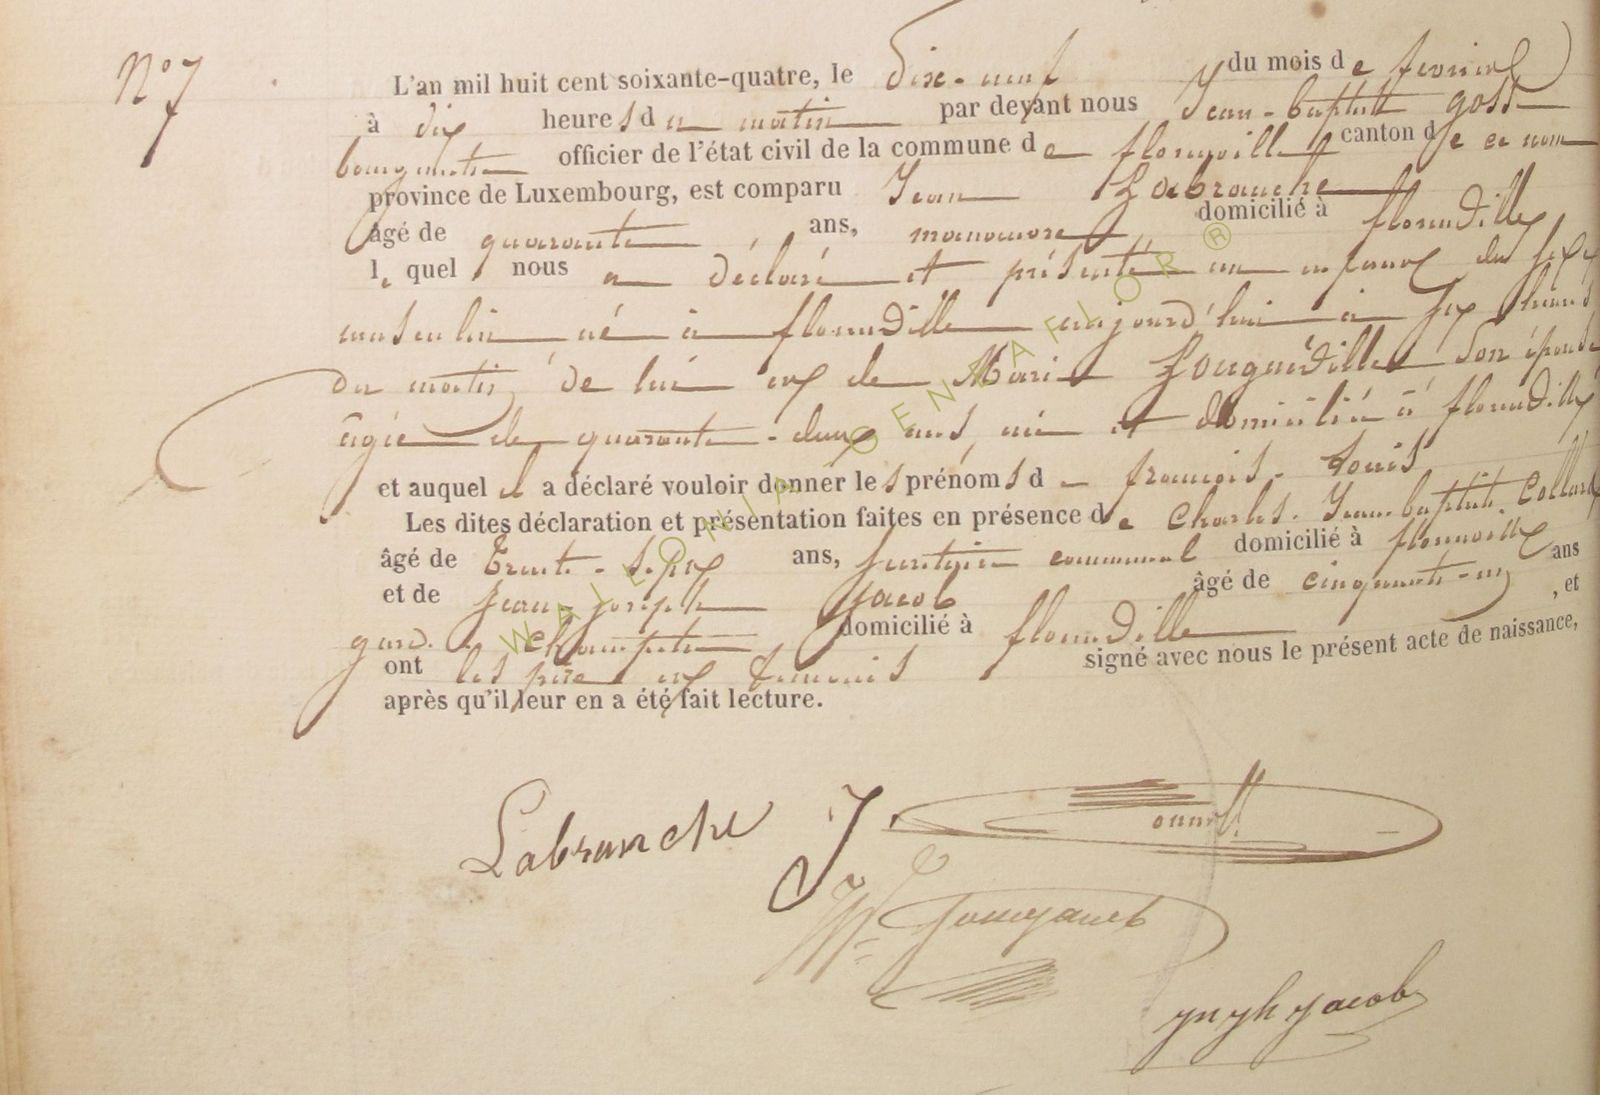 N° 7
L'an mil huit cent soixante-quatre, le dix-neuf du mois de fevrier
à dix heures du matin par devant nous Jean-baptiste
bourgmestre officier de l'état civil de la commune de florenville canton de ce nom
province de Luxembourg, est comparu Jean Labranche
âgé de quarante ans, manoeuvre domicilié à florenville
lequel nous a déclaré et présenté un enfant du sexe
masculin né à florenville aujourd'hui à six heures
du matin de lui et de Marie son épouse
âgée de quarante-deux ans, née et domiciliée à florenville
et auquel il a déclaré vouloir donner les prénoms de françois-Louis
Les dites déclaration et présentation faites en présence de Charles-Jean-baptiste Collard
âgé de Trente-sept ans, secrétaire communal domicilié à florenville
et de Jean-joseph Jacob âgé de cinquante-un ans
garde champêtre domicilié à florenville, et
ont les père et témoins signé avec nous le présent acte de naissance,
après qu'il leur en a été fait lecture.
WALLONIA-GENEAFLOR ®
Labranche J.
Jacob